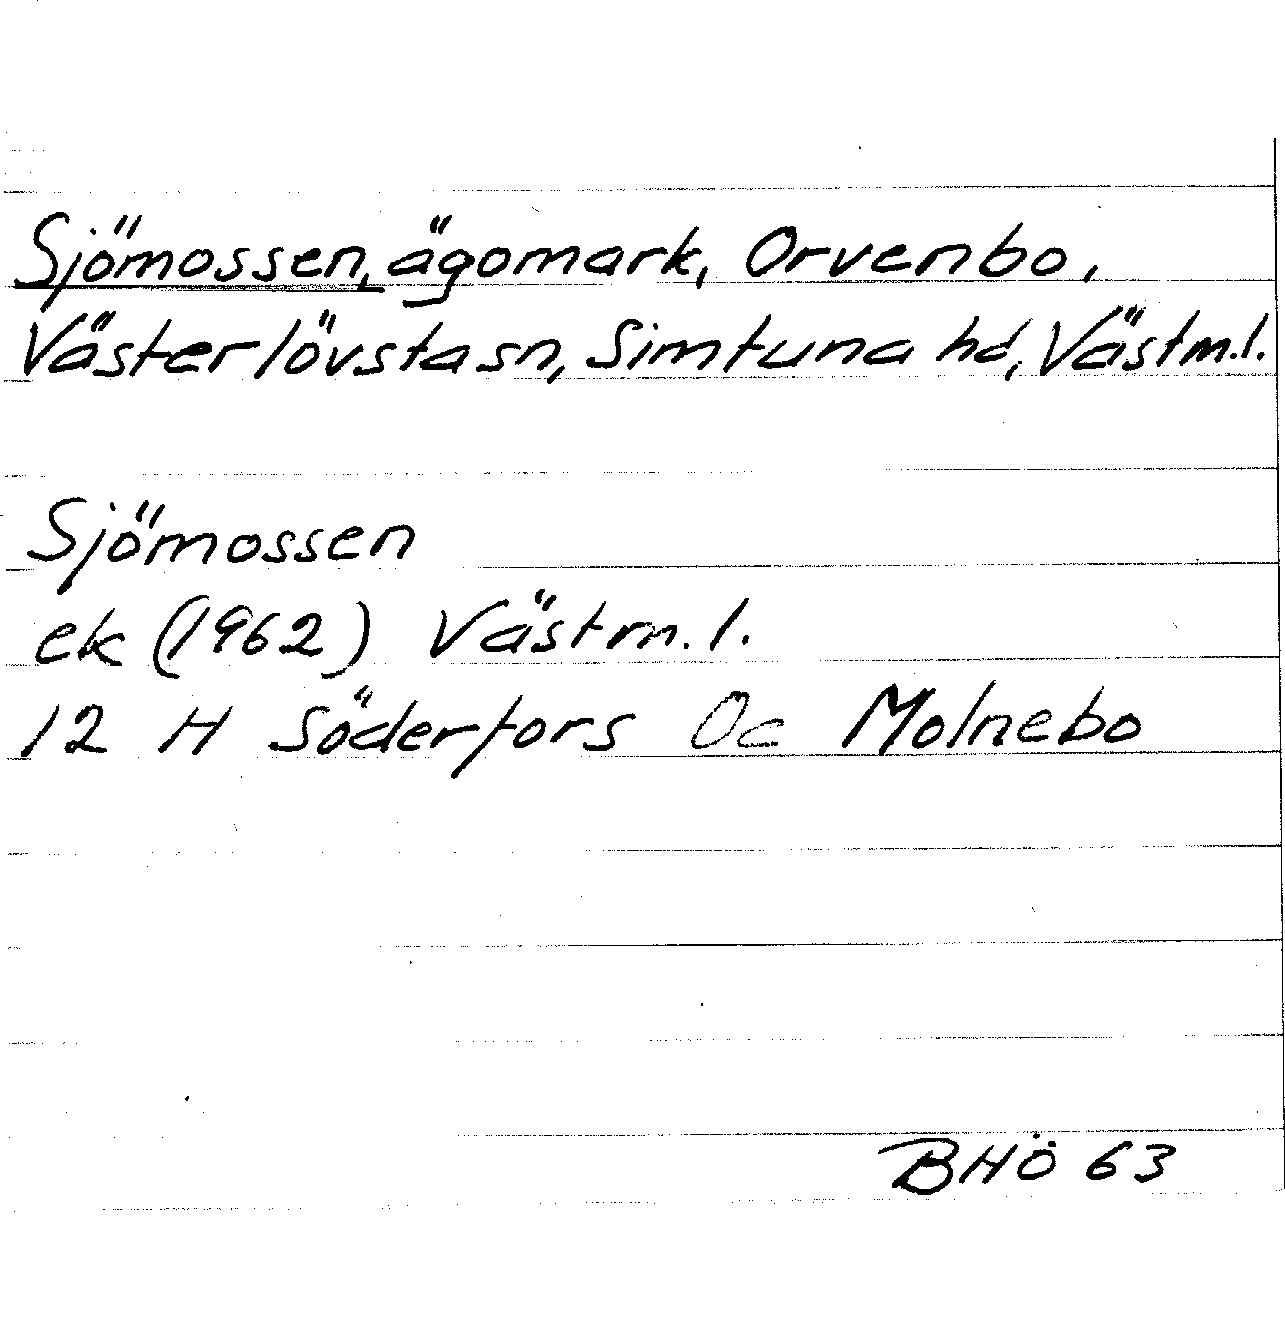 Sjömossen, ägomark, Orvenbo,
Västerlövsta sn, Simtuna hd, Västm.l.
Sjömossen
ek (1962) Västm.l.
12 H Söderfors Oc Molnebo
BHÖ 63